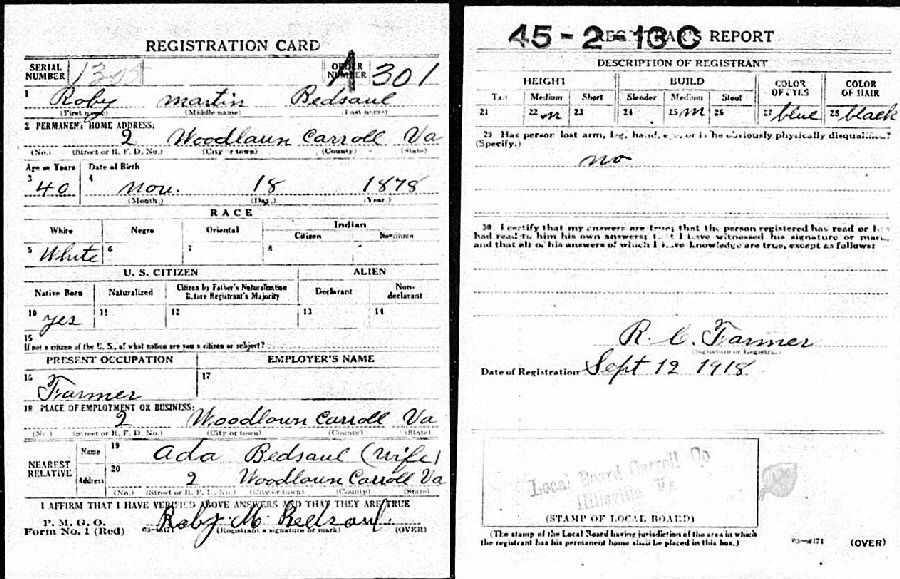 REGISTRATION CARD
SERIAL NUMBER
ORDER NUMBER A 301
1 Roby martin Bedsaul
(First name) (Middle name) (Last name)
2 PERMANENT HOME ADDRESS:
2 Woodlawn Carroll Va
(No.) (Street or R. F. D. No.) (City or town) (County) (State)
Age in Years Date of Birth
3 40 4 Nov. 18 1878
(Month.) (Day.) (Year.)
RACE
White Negro Oriental Indian
Citizen Noncitizen
5 White 6 7 8
U. S. CITIZEN ALIEN
Native Born Naturalized Citizen by Father's Naturalization Before Registrant's Majority Declarant Non-declarant
10 yes 11 12 13 14
15
If not a citizen of the U. S., of what nation are you a citizen or subject?
PRESENT OCCUPATION EMPLOYER'S NAME
16 Farmer 17
18 PLACE OF EMPLOYMENT OR BUSINESS:
2 Woodlawn Carroll Va
(No.) (Street or R. F. D. No.) (City or town) (County) (State)
NEAREST RELATIVE Name 19 Ada Bedsaul (Wife)
Address 20 2 Woodlawn Carroll Va
(No.) (Street or R. F. D. No.) (City or town) (County) (State)
I AFFIRM THAT I HAVE VERIFIED ABOVE ANSWERS AND THAT THEY ARE TRUE
P. M. G. O.
Form No. 1 (Red) Roby M. Bedsaul
(Registrant's signature or mark) (OVER)
45-2-13 C
REGISTRAR'S REPORT
DESCRIPTION OF REGISTRANT
HEIGHT BUILD COLOR OF EYES COLOR OF HAIR
Tall Medium Short Slender Medium Stout
21 22 m 23 24 25 m 26 27 blue 28 black
29 Has person lost arm, leg, hand, eye, or is he obviously physically disqualified?
(Specify.)
no
30 I certify that my answers are true; that the person registered has read or has
had read to him his own answers; that I have witnessed his signature or mark,
and that all of his answers of which I have knowledge are true, except as follows:
R. C. Farmer
(Signature of Registrar)
Date of Registration Sept 12 1918
Local Board Carroll Co
Hillsville Va
(STAMP OF LOCAL BOARD)
(The stamp of the Local Board having jurisdiction of the area in which
the registrant has his permanent home shall be placed in this box.)
(OVER)